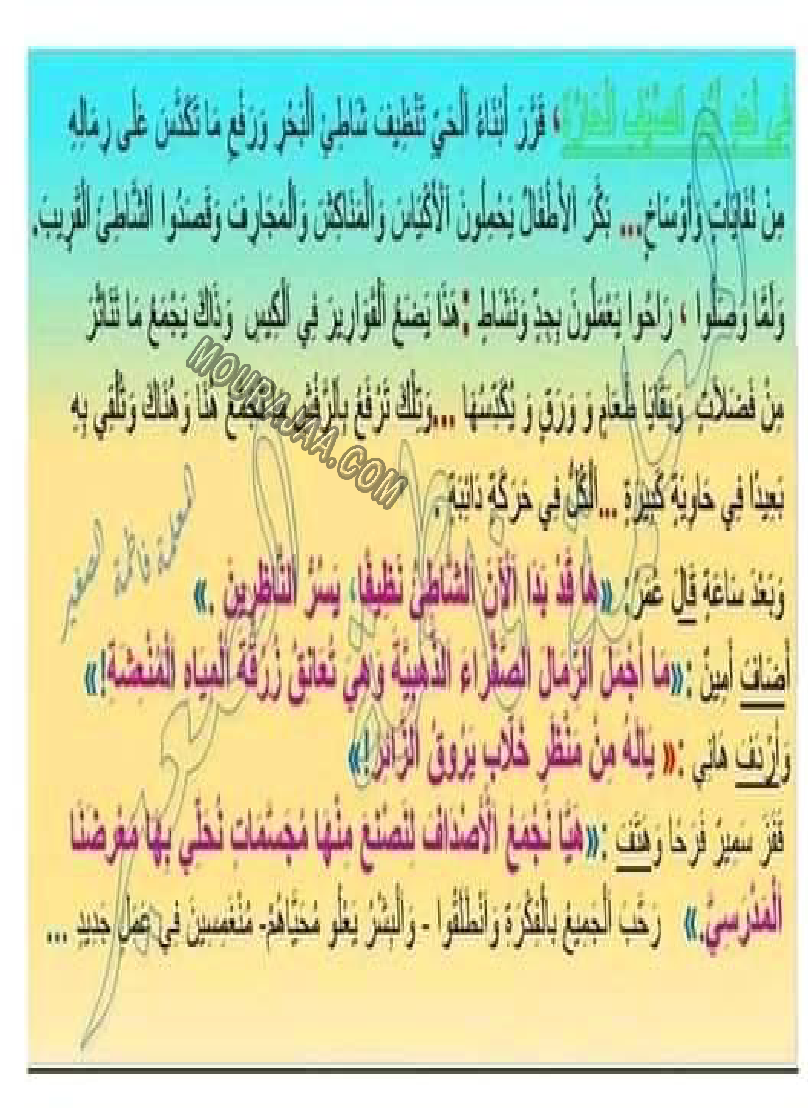 فِي أَحَدِ أَيَّامِ الصَّيْفِ الْحَارَّةِ، قَرَّرَ أَبْنَاءُ الْحَيِّ تَنْظِيفَ شَاطِئِ الْبَحْرِ وَرَفْعِ مَا تَكَدَّسَ عَلَى رِمَالِهِ
مِنْ نُفَايَاتٍ وَأَوْسَاخٍ... بَكَّرَ الْأَطْفَالُ يَحْمِلُونَ الْأَكْيَاسَ وَالْمَنَاكِشَ وَالْمَجَارِفَ وَقَصَدُوا الشَّاطِئَ الْقَرِيبَ.
وَلَمَّا وَصَلُوا ، رَاحُوا يَعْمَلُونَ بِجِدٍّ وَنَشَاطٍ : هَذَا يَضَعُ الْقَوَارِيرَ فِي الْكِيسِ وَذَاكَ يَجْمَعُ مَا تَنَاثَرَ
مِنْ فَضَلَاتٍ وَبَقَايَا طَعَامٍ وَ وَرَقٍ وَ يُكَدِّسُهَا ...وَتِلْكَ تَرْفَعُ بِالرَّفْشِ مَا تَجَمَّعَ هُنَا وَهُنَاكَ وَتُلْقِي بِهِ
بَعِيدًا فِي حَاوِيَةٍ كَبِيرَةٍ ...الْكُلُّ فِي حَرَكَةٍ دَائِبَةٍ .
وَبَعْدَ سَاعَةٍ قَالَ عُمَرُ: «هَا قَدْ بَدَا الْآنَ الشَّاطِئُ نَظِيفًا، يَسُرُّ النَّاظِرِينَ .»
أَضَافَ أَمِينٌ :«مَا أَجْمَلَ الرِّمَالَ الصَّفْرَاءَ الذَّهَبِيَّةَ وَهِيَ تُعَانِقُ زُرْقَةَ الْمِيَاهِ الْمُنْعِشَةِ!»
وَأَرْدَفَ هَانِي :« يَالَهُ مِنْ مَنْظَرٍ خَلَّابٍ يَرُوقُ الزَّائِرَ!»
قَفَزَ سَمِيرٌ فَرَحًا وَهَتَفَ :«هَيَّا نَجْمَعُ الْأَصْدَافَ لِنَصْنَعَ مِنْهَا مُجَسَّمَاتٍ نُحَلِّي بِهَا مَعْرِضَنَا
الْمَدْرَسِيَّ.» رَحَّبَ الْجَمِيعُ بِالْفِكْرَةِ وَانْطَلَقُوا - وَالْبِشْرُ يَعْلُو مُحَيَّاهُمْ- مُنْغَمِسِينَ فِي عَمَلٍ جَدِيدٍ ...
MOURAJAA.COM
المعلمة فاطمة الصغير